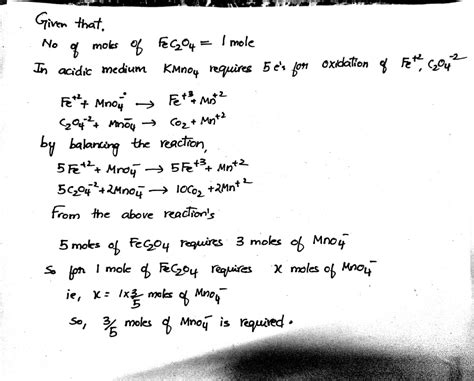 Given that,
No of moles of FeC₂O₄ = 1 mole
In acidic medium KMnO₄ requires 5 e's for oxidation of Fe⁺², C₂O₄⁻²
Fe⁺² + MnO₄⁻ → Fe⁺³ + Mn⁺²
C₂O₄⁻² + MnO₄⁻ → CO₂ + Mn⁺²
by balancing the reaction,
5 Fe⁺² + MnO₄⁻ → 5 Fe⁺³ + Mn⁺²
5 C₂O₄⁻² + 2MnO₄⁻ → 10CO₂ + 2Mn⁺²
From the above reaction's
5 moles of FeC₂O₄ requires 3 moles of MnO₄⁻
So for 1 mole of FeC₂O₄ requires x moles of MnO₄⁻
ie, x = 1×3/5 moles of MnO₄⁻
So, 3/5 moles of MnO₄⁻ is required.